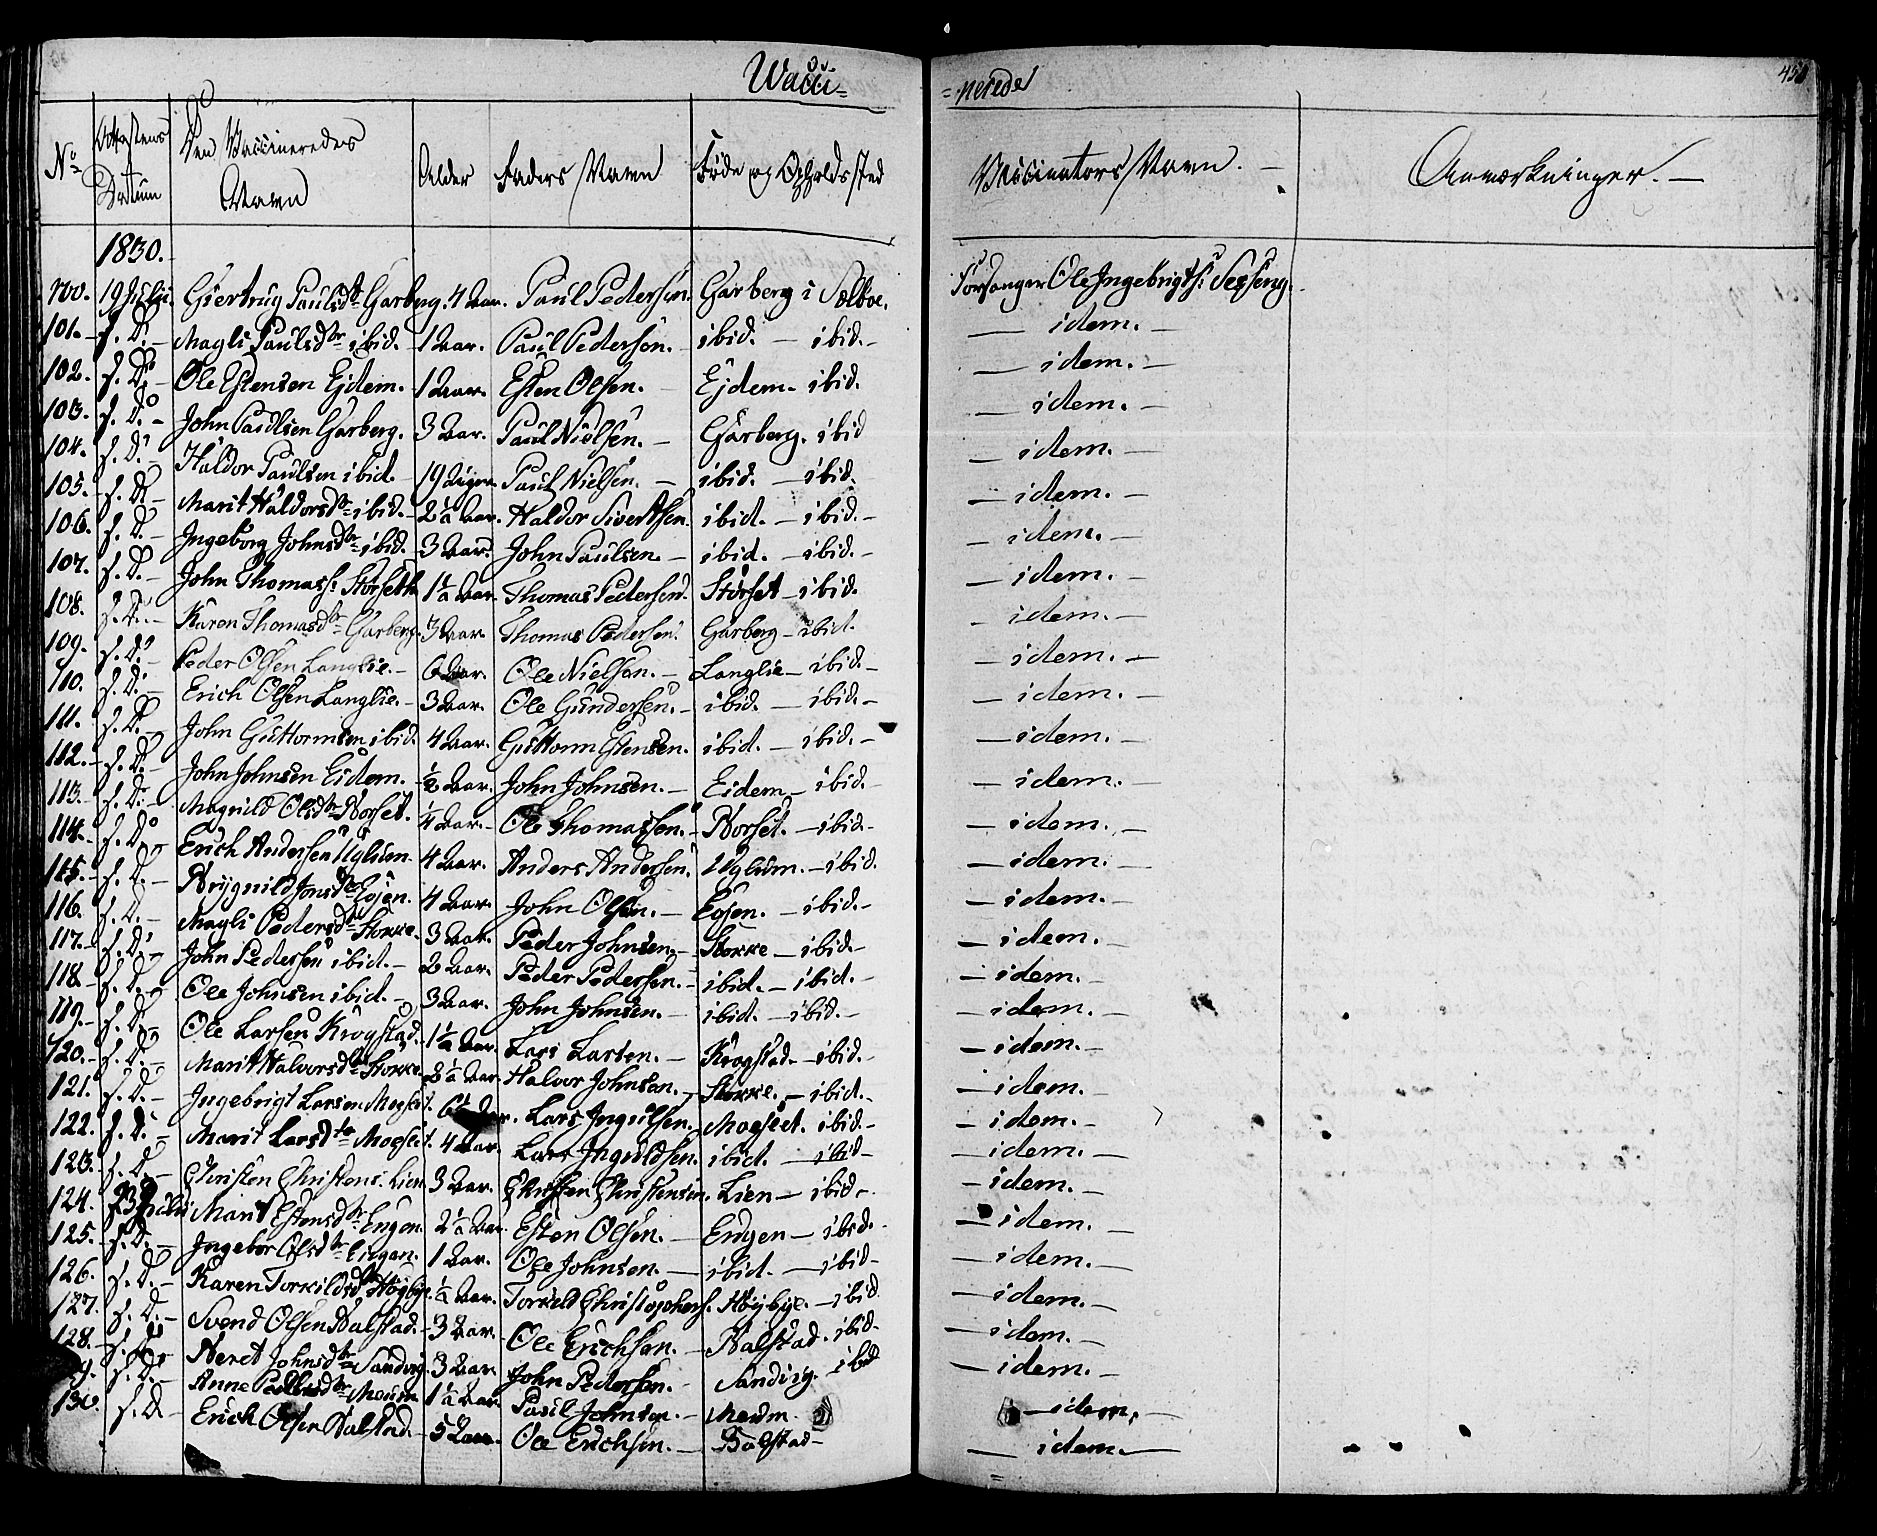 Wacci= =nerede
450
No Attestens Datum Den Vaccineredes Navn Alder Faders Navn Føde og Opholdssted Vaccinators Navn. — Anmærkninger. —
1830.
100. 19 Julii. Giertrug Paulsdtr Garberg. 4 Aar. Paul Pedersen. Garberg i Sælboe. Forsanger Ole Ingebrigts:
101. — s. D. — Magli Paulsdtr ibid. — 1 Aar. Paul Pedersen. — ibid. — ibid. — — idem. —
102. s. D. — Ole Estensen Ejdem. — 1 Aar. Esten Olsen. — Ejdem. ibid. — idem. —
103. s. Do — John Paulsen Garberg. 3 Aar. Paul Nielsen. — Garberg. ibid — idem. —
104. s. D. — Haldor Paulsen ibid. 19 Paul Nielsen. — ibid. — ibid. — idem. —
105. s. D — Marit Haldorsdtr ibid. — 2½ Aar. Haldor Sivertsen. ibid. — ibid. — — idem. —
106. s. D. — Ingeborg Johnsdtr ibid. 3 Aar. John Paulsen. — ibid. — ibid. — — idem. —
107. s. D. — John Thomass: Storseth 1½ Aar. Thomas Pedersen. Storset — ibid. — idem. —
108. s. D. — Karen Thomasdtr Garberg. 3 Aar. Thomas Pedersen. Garberg — ibid. — idem. —
109. s. D. — Peder Olsen Langlie. — 6 Aar. Ole Nielsen. — Langlie — ibid. — — idem. —
110. s. D. — Erich Olsen Langlie. — 3 Aar. Ole Gundersen. — ibid. — ibid. — — idem. —
111. s. D. — John Guttormsen ibid. 4 Aar. Guttorm Estensen. ibid. — ibid. — — idem. —
112. — s. D. — John Johnsen Eidem. ½ Aar. John Johnsen. — Eidem — ibid. — — idem. —
113. s. D. — Magnild Olsdtr Norset. ¼ Aar. — Ole Thomassen. — Norset. — ibid. — — idem. —
114. s. Do Erich Andersen Uglum. 4 Aar. Anders Andersen. Uglum. — ibid. — idem. —
115. s. D. — Brÿgnild Jonsdtr Evjen. 4 Aar. John Olsen. — Evjen. — ibid. — — idem. —
116. s. D. — Magli Pedersdtr Stokke. 3 Aar. Peder Johnsen. — Stokke — ibid. — — idem. —
117. s. D. — John Pedersen ibid. — 2 Aar. Peder Pedersen. — ibid. — ibid. — — idem. —
118. s. D. — Ole Johnsen ibid. — 3 Aar. John Johnsen. — ibid. — ibid. — — idem. —
119. — s. D. — Ole Larsen Krogstad. 1½ Aar. Lars Larsen. — Krogstad. — ibid. — — idem. —
120. — s. D. — Marit Halvorsdtr Stokke. 2½ Aar. Halvor Johnsen. — Stokke. — ibid. — — idem. —
121. s. D. — Ingebrigt Larsen Moeseet. 6½ Aar. Lars Moeseet. ibid. — — idem. —
122. s. D. — Marit Larsdtr Moeseet. 4 Aar. Lars ibid. — ibid — — idem. —
123. s. D. — Christen Christens: Lien 3 Aar. Christen Christensen. Lien — ibid — — idem. —
124. 23 Julii Marit Estensdtr Engen. 2½ Aar. Esten Olsen. — Engen — ibid. — idem. —
125. s. D. — Ingebor Olsdtr Engan. 1 Aar. Ole Johnsen. — ibid. — ibid — — idem. —
126. s. D. — Karen Torkildsdtr Høyby. ½ Aar. Torkeld Christophers. Høybye. — ibid — idem. —
127. s. D. — Svend Olsen Balstad. — 3 Aar. Ole Erichsen. — Balstad. ibid. — idem. —
128. s. D. Beret Johnsdtr Sandvig. 3 Aar. John Pedersen. Sandvig. ibid — idem. —
9. s. D. Anne Paulsdtr Moum 1½ Aar. Paul Johnsen. — Moum. — idem. —
130. s. D — Erich Olsen Balstad. 5 Aar. Ole Erichsen. — Balstad — — idem. —